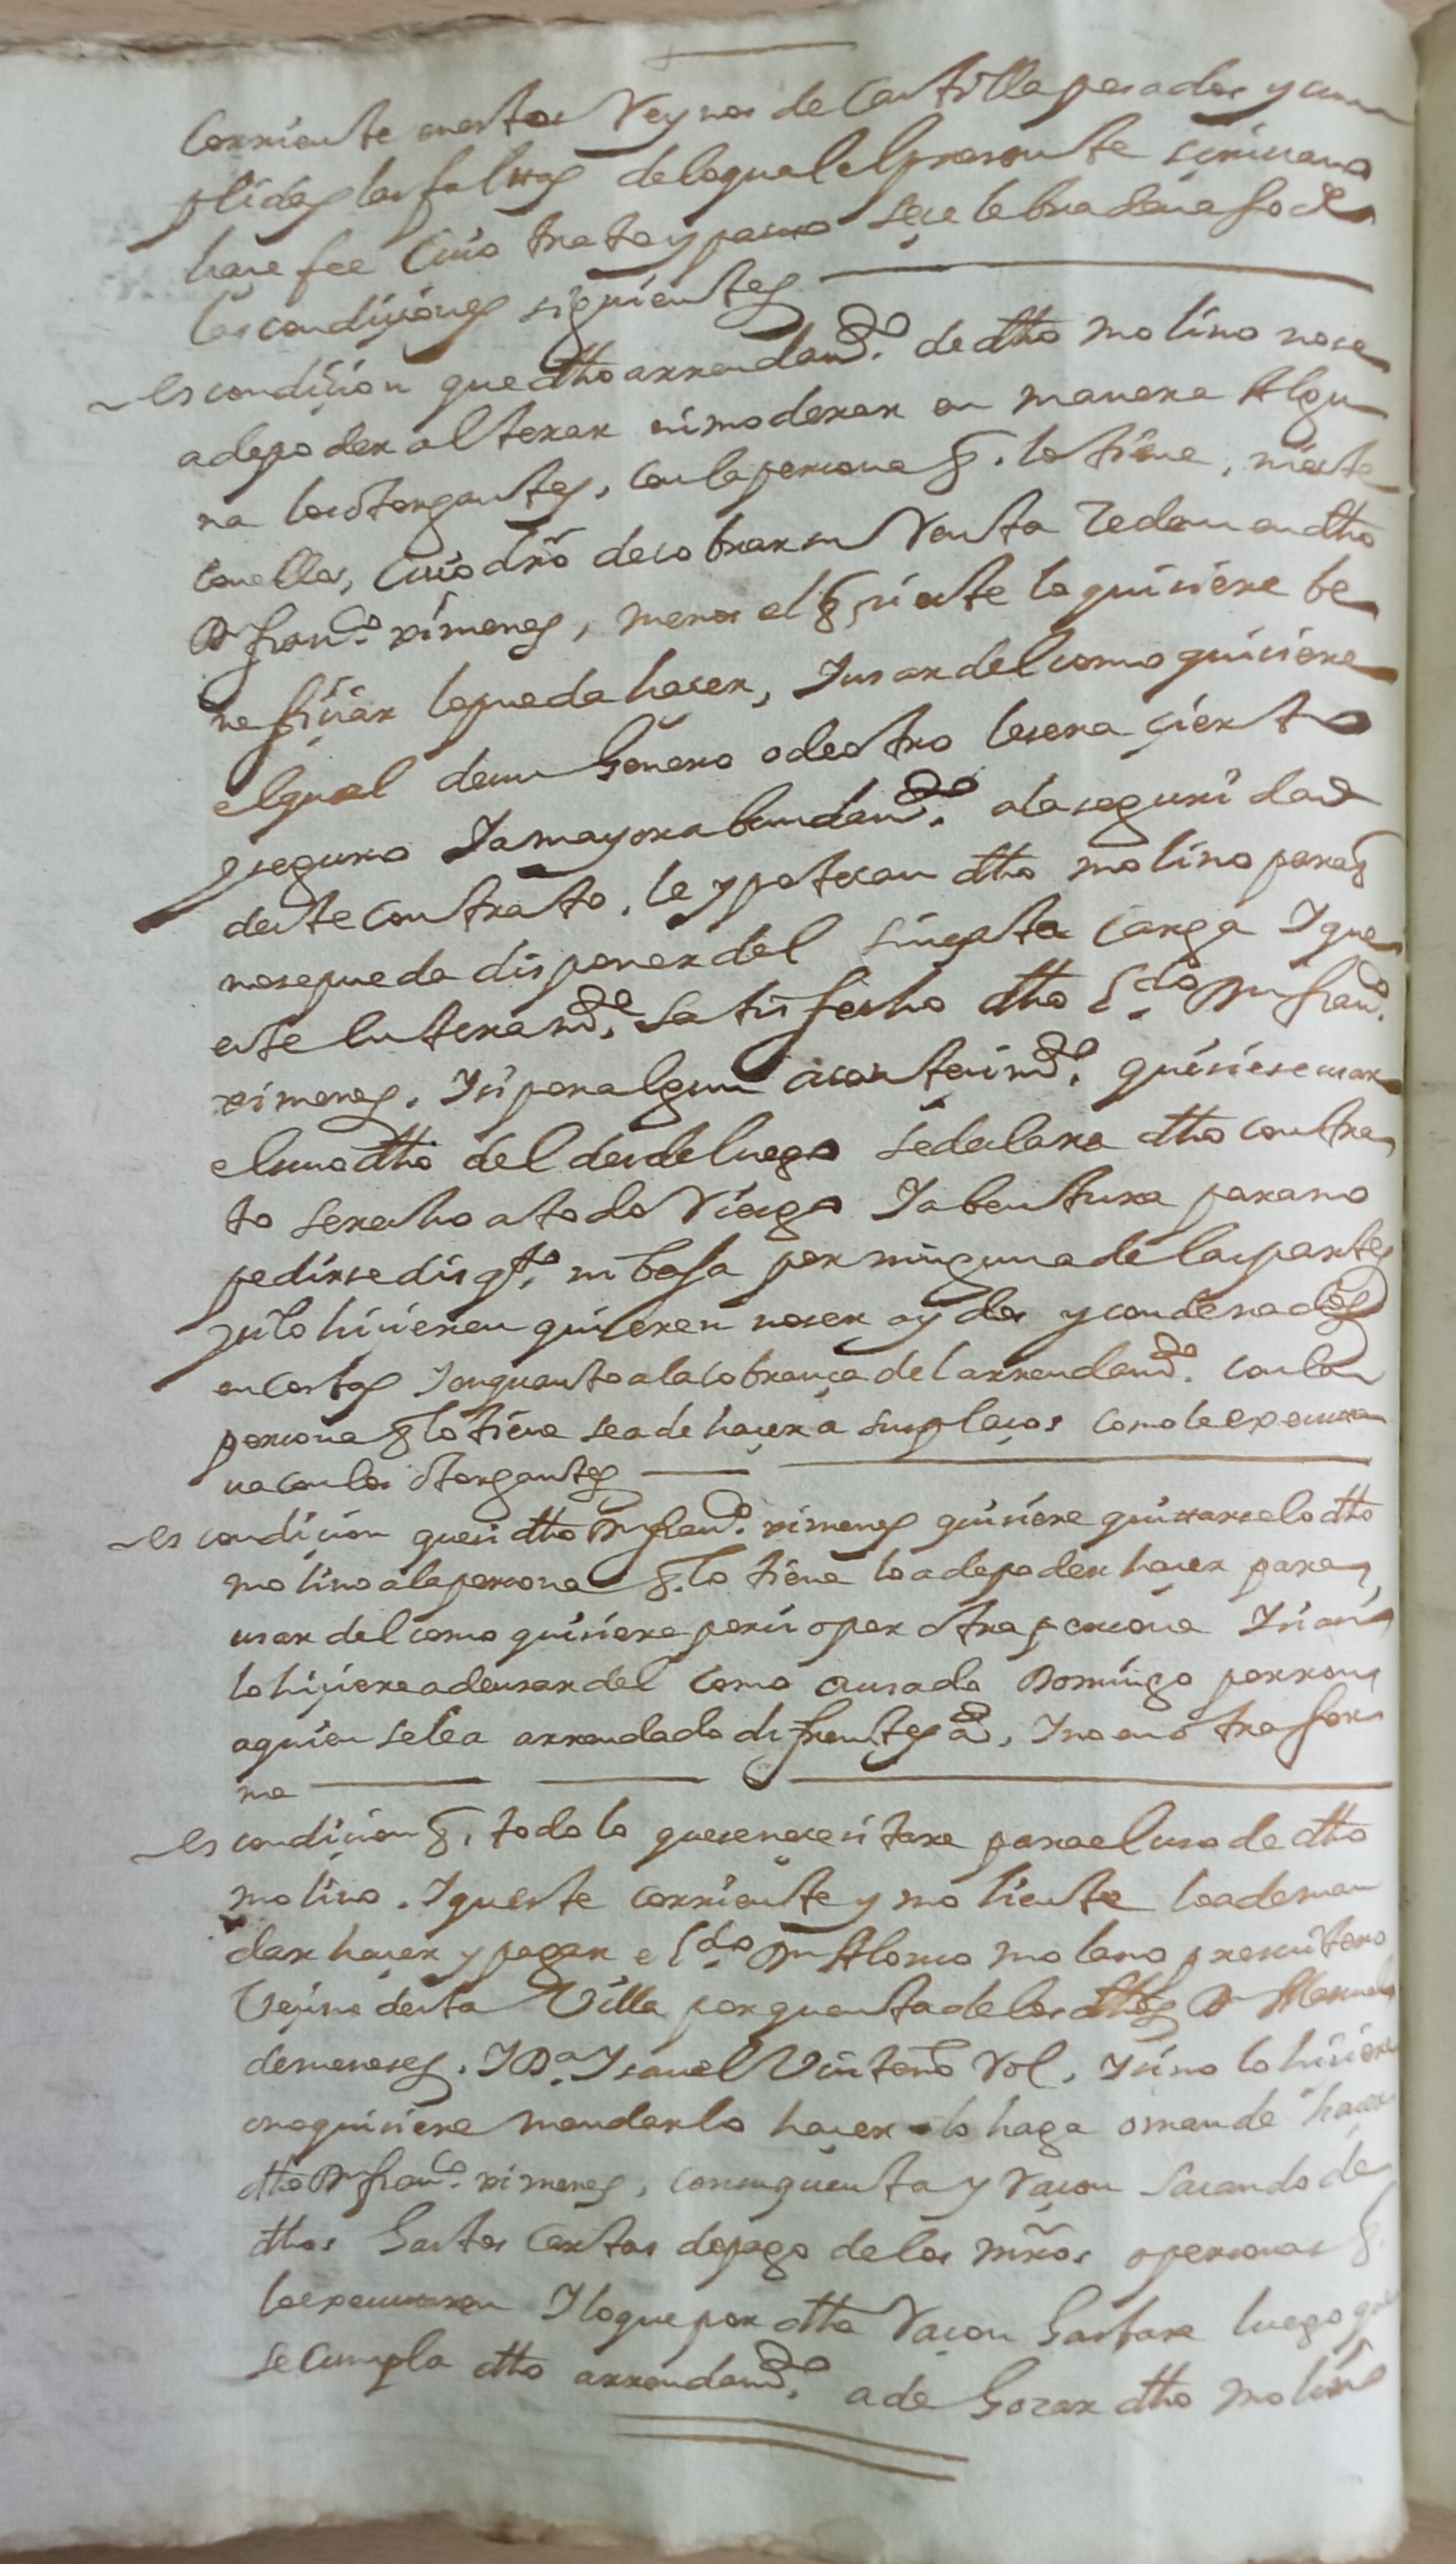 Corriente enestos Reynos de Castilla pasados y cum
plidas las faltas delo qual el presente scrivano
haçe fee Cuio trato y pacto seçelebra devajo de
las condiçiones siguientes
es condiçion que dho arrendamto. de dho molino nose
adepoder alterar ni moderar en manera Algu
na los otorgantes, con la persona q. lo tiene, nieste
conellos, Cuio dro de cobrar su Renta ceden en dho
Dn franco. ximenes, menos el q si este lo quisiere be
nefiçiar lo pueda hacer, Jusar del como quisiere
el qual deun Genero o deotro lesera çierto
y seguro Ja mayor abundamto. ala seguridad
deste contrato. le ypotecan dho molino para q
nosepueda disponer del sin esta Carga Jque
este Enteramte. Satisfecho dho Ldo Dn franco.
ximenes. Jsi por algun aconteçimto. quisiese usar
el uno dho del desde luego sedeclara dho contra
to serecho a todo Riesgo Jabentura para no
pedirse disqto. ni baja por ninguna de las partes
y silo hiçieren quieren noser oydos y condenados
en Costas Jenquanto ala cobrança del arrendamto. con la
persona q lo tiene sea de haçer a sus plaços como la
na con los otorgantes
es condiçion que si dho Dn franco. ximenes quisiere quitarselo dho
molino ala persona q. lo tiene lo adepoder haçer para
usar del como quisiere por si o por otra persona Jsi asi
lo hiçiere adeusar del como a usado Domingo perrony
aquien sele a arrendado difrentes as, Jno en otra for
ma
es condiçion q. todo lo que senecesitare para el uso de dho
molino. Jqueste corriente y moliente lo a deman
dar haçer y pagar el Ldo Dn Alonso molano presvitero
Veçino desta Villa por quenta de los dhos Dn Manuel
demeneses. JDa. Jsavel Rol, Jsino lo hiçiere
o no quisiere mandarlo haçer lo haga o mande haçer
dho Dn franco. ximenes, con su quenta y Raçon sacando de
dhos Gastos Cartas depago de los mros o personas q.
lo Jlo que por dha Raçon Gastare luego que
se Cumpla dho arrendamto. a de Goçar dho molino